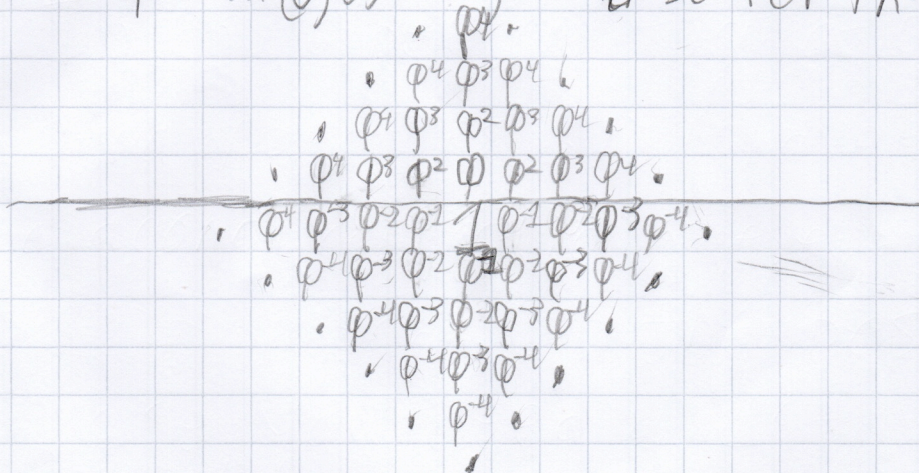 φ4
φ4 φ3 φ4
φ4 φ3 φ2 φ3 φ4
φ4 φ3 φ2 φ φ2 φ3 φ4
φ-4 φ-3 φ-2 φ-1 1 φ-1 φ-2 φ-3 φ-4
φ-4 φ-3 φ-2 φ-1 φ-2 φ-3 φ-4
φ-4 φ-3 φ-2 φ-3 φ-4
φ-4 φ-3 φ-4
φ-4